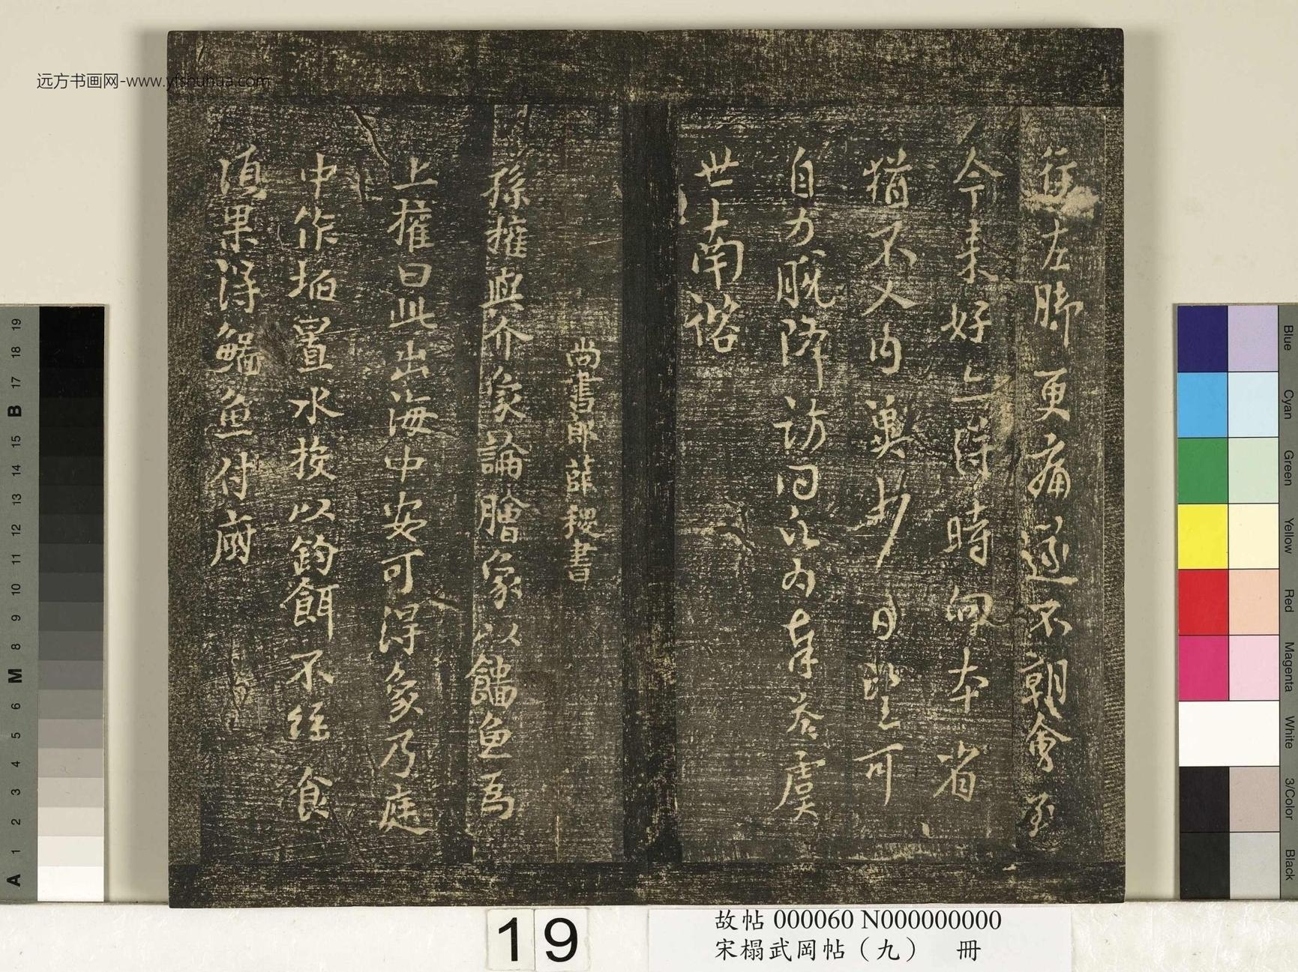 往左脚更痛遂不朝會至
今未好亦得時向本省
猶不入內冀少日望可
自力脫降訪問必為奉答虞
世南諮
尚書郎薛稷書
孫權與介象論膾象以鯔魚為
上權曰此出海中安可得象乃庭
中作坎置水投以釣餌不經食
頃果得鯔魚付廚
远方书画网-www.yfshuhua.com
19
故帖 000060 N000000000
宋榻武岡帖（九） 冊
19
18
17
B
15
14
13
12
11
10
9
8
M
6
5
4
3
2
1
A
Blue
Cyan
Green
Yellow
Red
Magenta
White
3/Color
Black